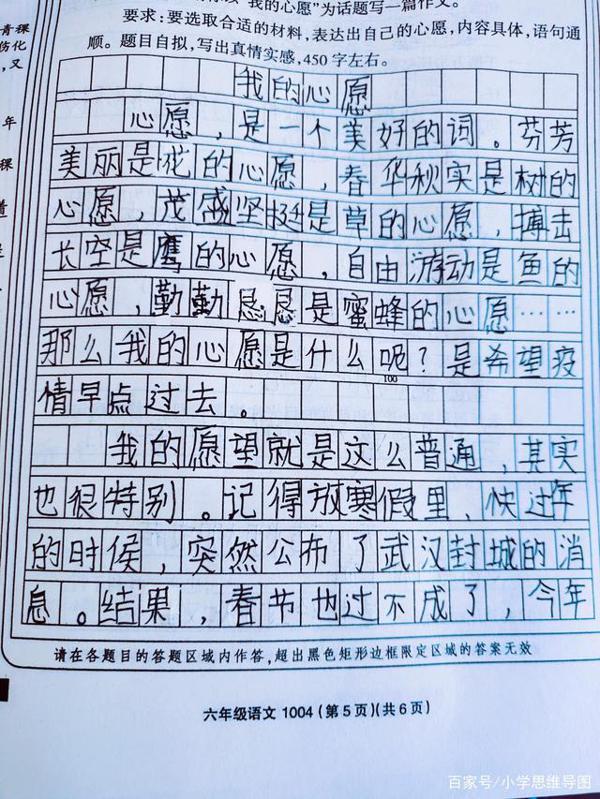 “我的心愿”为话题写一篇作文。
要求:要选取合适的材料,表达出自己的心愿,内容具体,语句通
顺。题目自拟,写出真情实感,450字左右。
我的心愿
心愿,是一个美好的词。芬芳
美丽是花的心愿,春华秋实是树的
心愿,茂盛坚挺是草的心愿,搏击
长空是鹰的心愿,自由游动是鱼的
心愿,勤勤恳恳是蜜蜂的心愿……
那么我的心愿是什么呢?是希望疫
100
情早点过去。
我的愿望就是这么普通,其实
也很特别。记得放寒假里,快过年
的时候,突然公布了武汉封城的消
息。结果,春节也过不成了,今年
请在各题目的答题区域内作答,超出黑色矩形边框限定区域的答案无效
六年级语文 1004(第5页)(共6页)
青稞
伤化
,又
年
稞
百家号/小学思维导图